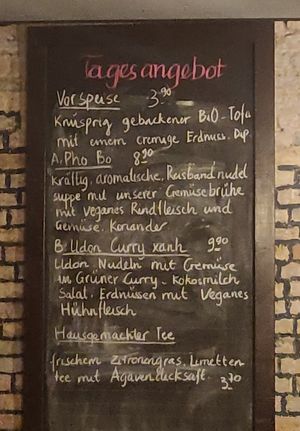 Tagesangebot
Vorspeise 3.90
Knusprig gebackener BiO-Tofu
mit einem cremige Erdnuss. Dip
A. Pho Bo 8.90
kräftig, aromalische, Reisband nudel
suppe mit unserer Gemüsebrühe
mit veganes Rindfleisch und
Gemüse, Koriander
B Udon Curry xanh 9.90
Udon Nudeln mit Gemüse
in Grüner Curry. Kokosmilch
Salat. Erdnüssen mit Veganes
Hühnfleisch
Hausgemachter Tee
frischem Zitronengras, Limetten
tee mit Agavendicksaft. 3.70